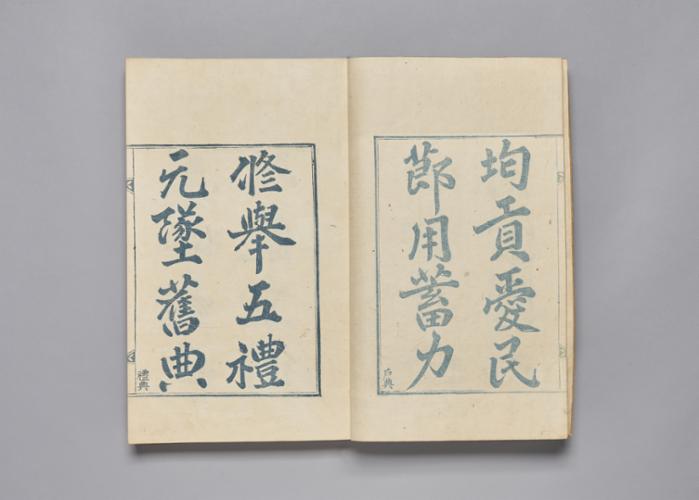 均貢愛民
節用蓄力
戶典
修擧五禮
无墜舊典
禮典